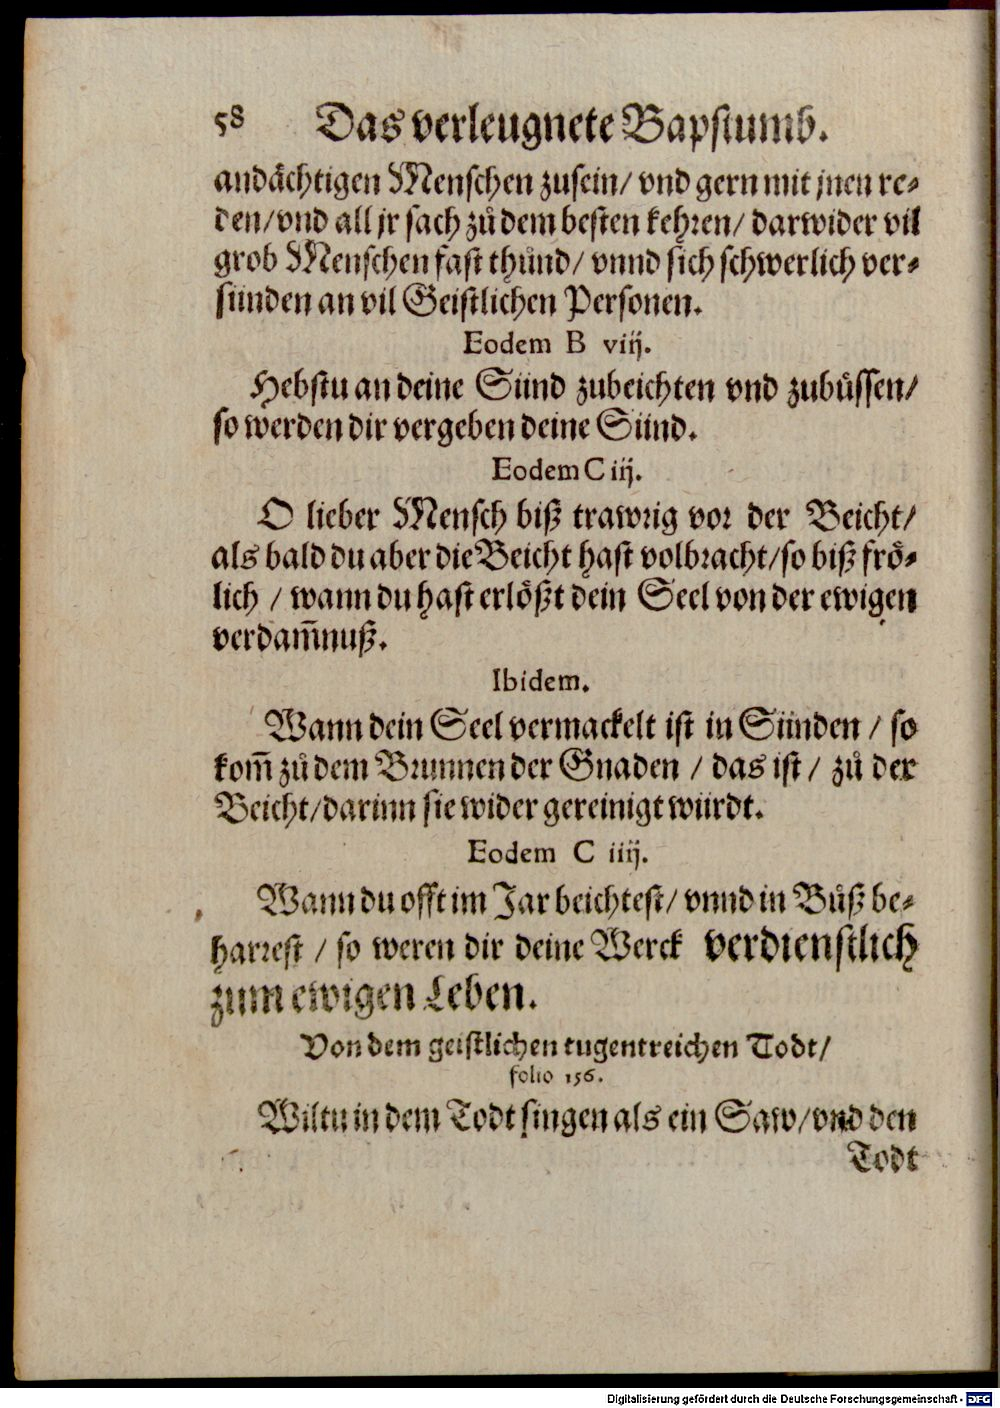 58 Das verleugnete Bapstumb.
andächtigen Menschen zusein/ vnd gern mit jnen re-
den/ vnd all jr sach zů dem besten kehren/ darwider vil
grob Menschen fast thůnd/ vnnd sich schwerlich ver-
sünden an vil Geistlichen Personen.
Eodem B viij.
Hebstu an deine Sünd zubeichten vnd zubůssen/
so werden dir vergeben deine Sünd.
Eodem C iij.
O lieber Mensch biß trawrig vor der Beicht/
als bald du aber die Beicht hast volbracht/ so biß frö-
lich / wann du hast erlößt dein Seel von der ewigen
verdam̄nuß.
Ibidem.
Wann dein Seel vermackelt ist in Sünden / so
kom̄ zů dem Brunnen der Gnaden / das ist / zů der
Beicht/ darinn sie wider gereinigt würdt.
Eodem C iiij.
Wann du offt im Jar beichtest/ vnnd in Bůß be-
harrest / so weren dir deine Werck verdienstlich
zum ewigen Leben.
Von dem geistlichen tugentreichen Todt/
folio 156.
Wiltu in dem Todt singen als ein Saw/ vnd den
Todt
Digitalisierung gefördert durch die Deutsche Forschungsgemeinschaft - DFG